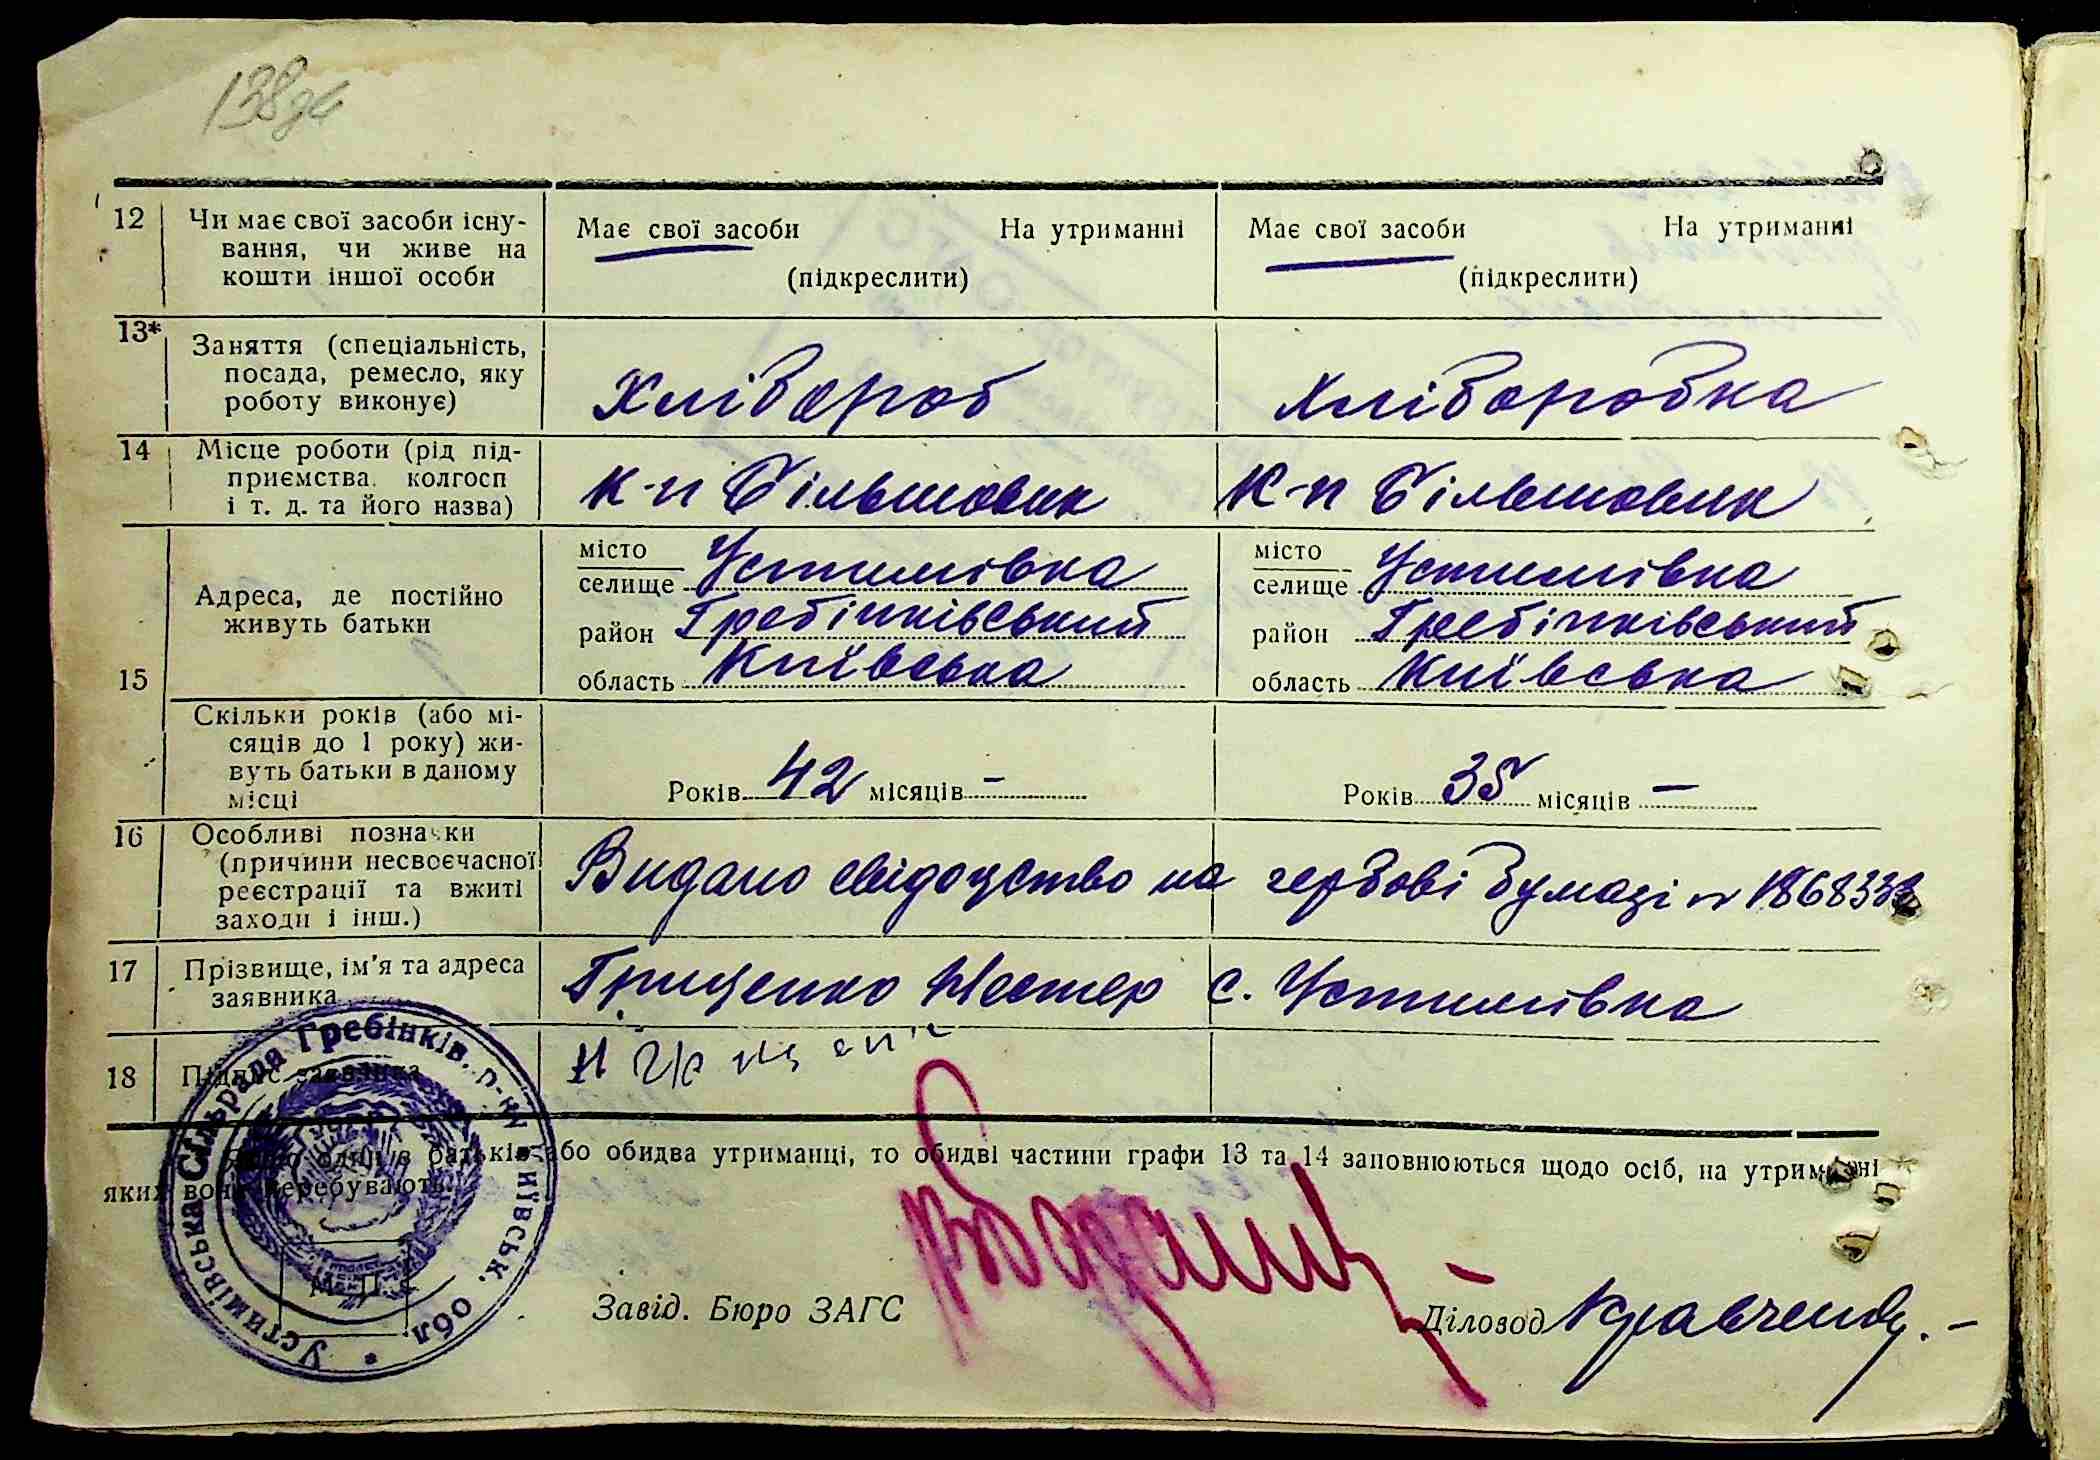 138
12 Чи має свої засоби існу- Має свої засоби На утриманні Має свої засоби На утриманні
вання, чи живе на
кошти іншої особи (підкреслити) (підкреслити)
13* Заняття (спеціальність,
посада, ремесло, яку Хлібороб Хліборобка
роботу виконує)
14 Місце роботи (рід під-
приємства, колгосп К-п Більшовик К-п Більшовик
і т. д. та його назва)
15 Адреса, де постійно
живуть батьки
місто
селище Устимівка
район Гребінківський
область Київська
місто
селище Устимівка
район Гребінківський
область Київська
Скільки років (або мі-
сяців до 1 року) жи-
вуть батьки в даному Років 42 місяців – Років 35 місяців –
місці
16 Особливі позначки
(причини несвоєчасної Видано свідоцтво на гербові бумазі №
реєстрації та вжиті
заходи і інш.)
17 Прізвище, ім'я та адреса Грищенко Нестер с. Устимівка
заявника
18 Підпис заявника Н Грищенк
Якщо один з батьків або обидва утриманці, то обидві частини графи 13 та 14 заповнюються щодо осіб, на утриманні
яких вони перебувають.
Устимівська Сільрада Гребінків. р-ну Київськ. обл. *
М. П.
Завід. Бюро ЗАГС Діловод Кравченко